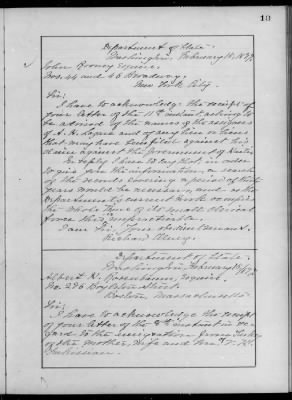 10
Department of State.
Washington, February 18, 1897.
John Rooney Esquire,
Nos. 44 and 46 Broadway,
New York City.
Sir:
I have to acknowledge the receipt of
your letter of the 11th instant, asking to
be advised of the names of the assignees
of A. H. and of any lien or liens
that may have been filed against his
claim against the Government of
In reply I have to say that in order
to give you the information, a search
of the records covering a period of thirty
years would be necessary, and as the
Department's current work occupies
the whole time of its small clerical
force this is impracticable.
I am Sir, Your obedient servant,
Richard Olney.
Department of State.
Washington, February 18, 1897.
Albert H. Esquire,
No. 296 Boylston Street,
Boston, Massachusetts
Sir:
I have to acknowledge the receipt
of your letter of the 8th instant in re-
gard to the emigration from Turkey
of the mother, wife and